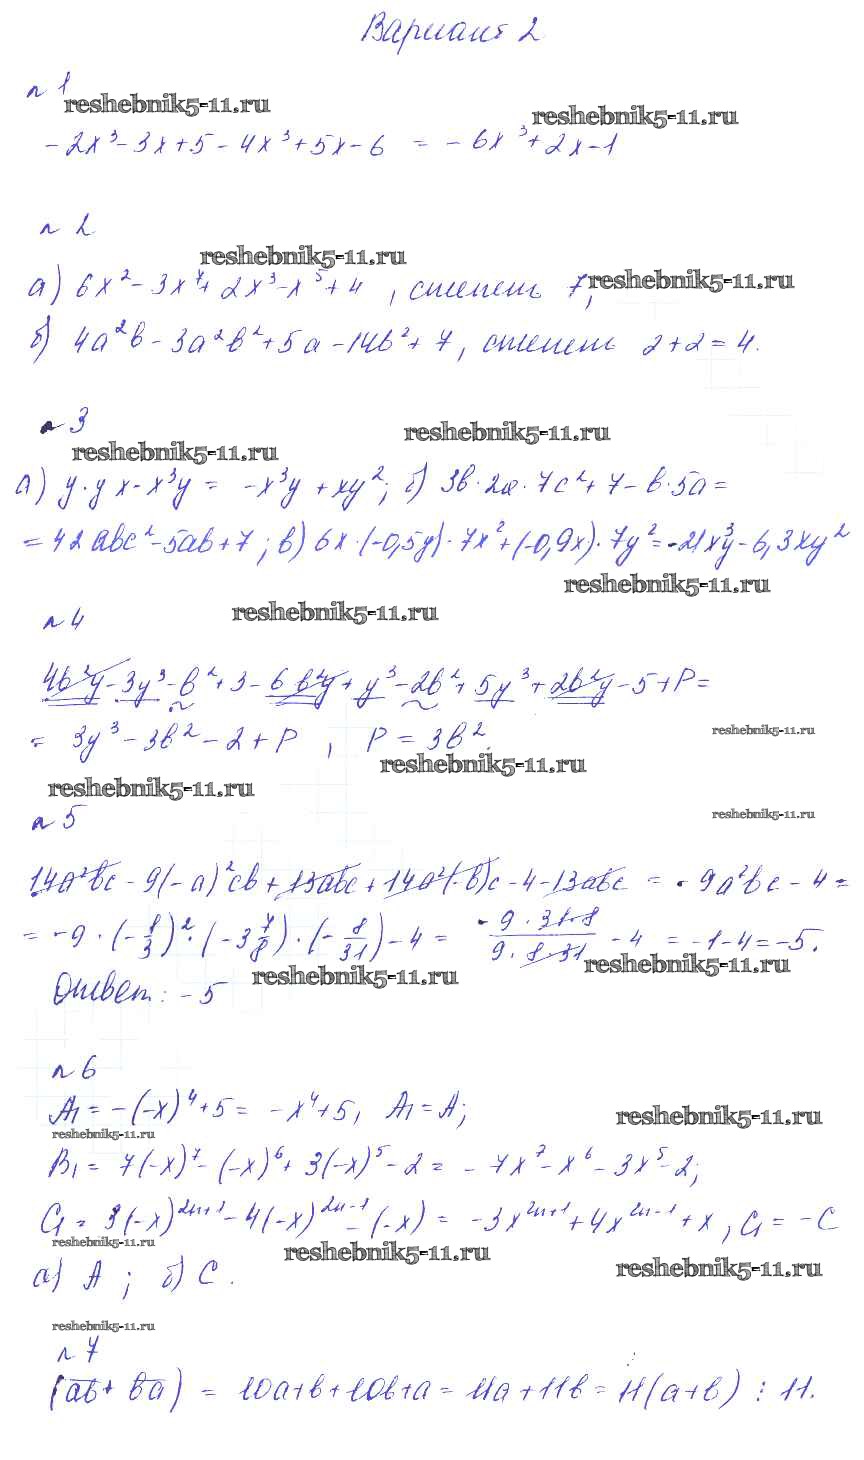 Вариант 2
n 1
reshebnik5-11.ru
reshebnik5-11.ru
-2x³-3x+5-4x³+5x-6 = -6x³+2x-1
n 2
reshebnik5-11.ru
а) 6x²-3x⁷+2x³-x⁵+4, степень 7;
reshebnik5-11.ru
б) 4a²b-3a²b²+5a-14b²+7, степень 2+2=4.
n 3
reshebnik5-11.ru
reshebnik5-11.ru
а) y·yx-x³y = -x³y+xy²; б) 3b·2a·7c²+7-b·5a=
=42abc²-5ab+7; в) 6x·(-0,5y)·7x²+(-0,9x)·7y²=-21x³y-6,3xy²
reshebnik5-11.ru
n 4
reshebnik5-11.ru
4b²y-3y³-b²+3-6b²y+y³-2b²+5y³+2b²y-5+P=
= 3y³-3b²-2+P, P=3b².
reshebnik5-11.ru
reshebnik5-11.ru
reshebnik5-11.ru
n 5
reshebnik5-11.ru
14a²bc-9(-a)²cb+13abc+14a²(-b)c-4-13abc = -9a²bc-4=
= -9·(-1/3)²·(-3 7/8)·(-8/31)-4 = -9·31·8/9·8·31 -4 = -1-4=-5.
reshebnik5-11.ru
reshebnik5-11.ru
Ответ: -5
n 6
A₁=-(-x)⁴+5= -x⁴+5, A₁=A;
reshebnik5-11.ru
reshebnik5-11.ru
B₁= 7(-x)⁷-(-x)⁶+3(-x)⁵-2= -7x⁷-x⁶-3x⁵-2;
C₁=3(-x)²ⁿ⁺¹-4(-x)²ⁿ⁻¹-(-x)= -3x²ⁿ⁺¹+4x²ⁿ⁻¹+x, C₁=-C
reshebnik5-11.ru
reshebnik5-11.ru
а) A; б) C.
reshebnik5-11.ru
reshebnik5-11.ru
n 7
(a̅b̅+b̅a̅) = 10a+b+10b+a=11a+11b=11(a+b) ⋮ 11.